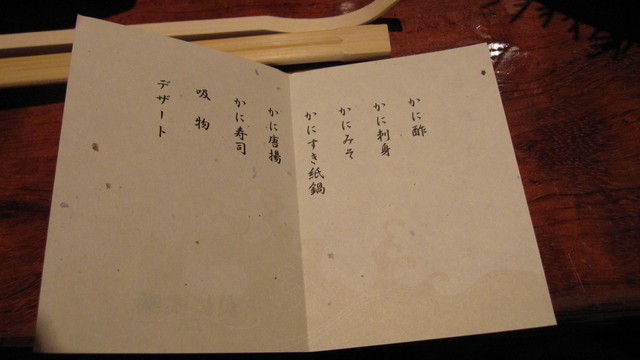 かに酢
かに刺身
かにみそ
かにすき紙鍋
かに唐揚
かに寿司
吸物
デザート